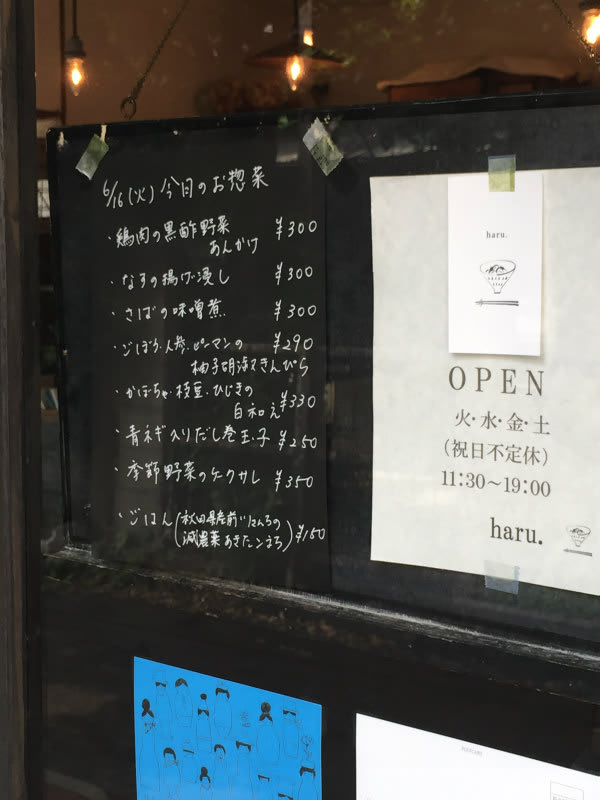 6/16(火) 今日のお惣菜
・鶏肉の黒酢野菜
あんかけ ¥300
・なすの揚げ浸し ¥300
・さばの味噌煮 ¥300
・ごぼう・人参・ピーマンの ¥290
柚子胡椒きんぴら
・かぼちゃ・枝豆・ひじきの
白和え ¥330
・青ネギ入りだし巻玉子 ¥250
・季節野菜のケークサレ ¥350
・ごはん(秋田県産
減農薬あきたこまち) ¥150
haru.
OPEN
火・水・金・土
(祝日不定休)
11:30〜19:00
haru.